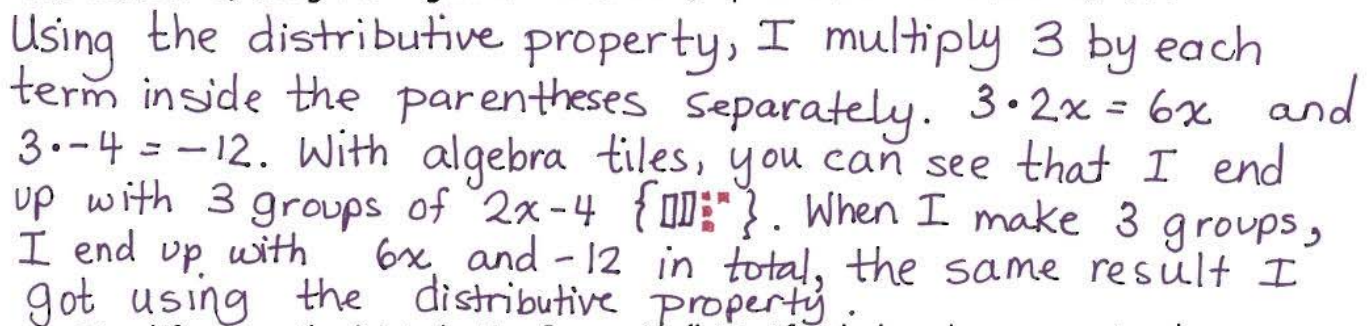 Using the distributive property, I multiply 3 by each
term inside the parentheses separately. 3·2x = 6x and
3·-4 = -12. With algebra tiles, you can see that I end
up with 3 groups of 2x-4 { }. When I make 3 groups,
I end up with 6x and -12 in total, the same result I
got using the distributive property.